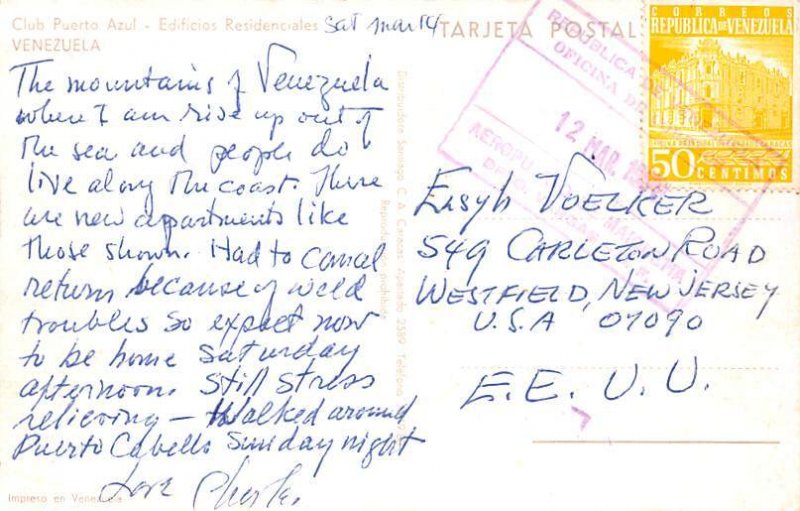 Club Puerto Azul - Edificios Residenciales
VENEZUELA
Sat Mar 14
The mountains of Venezuela
where I am rise up out of
the sea and people do
live along the coast. There
are new apartments like
those shown. Had to cancel
return because of weld
troubles so expect now
to be home Saturday
afternoon. Still stress
relieving — Walked around
Puerto Cabello Sunday night
Love
Impreso en Venezuela
Distribuidora Santiago C. A. Caracas Apartado 2589
Reproducción prohibida
TARJETA POSTAL
CORREOS
REPUBLICA DE VENEZUELA
CARACAS
50 CENTIMOS
REPUBLICA DE
OFICINA DE
12 MAR
AEROPU
VOELKER
549 CARLETON ROAD
WESTFIELD, NEW JERSEY
U.S.A 07090
E.E.U.U.